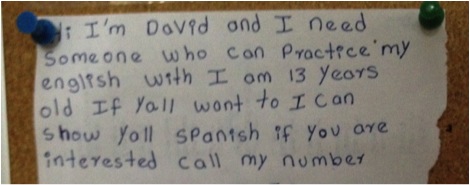 Hi I'm David and I need
Someone who can Practice my
english with I am 13 years
old If Yall want to I can
show Yall spanish if you are
interested call my number